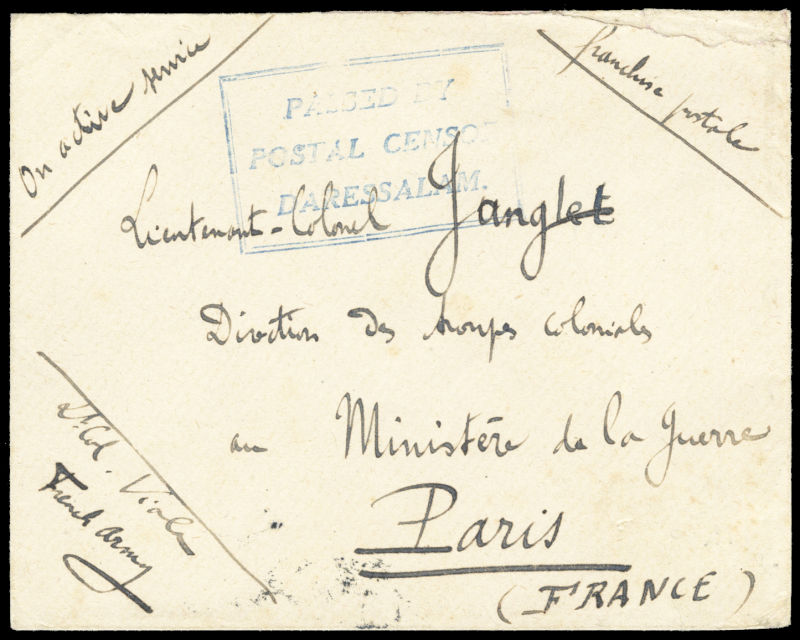 On active service
franchise postale
PASSED BY
POSTAL CENSOR
DARESSALAM.
Lieutenant-Colonel Janglet
Direction des troupes coloniales
au Ministère de la Guerre
Paris
(FRANCE)
Lt. Col. Viala
French army